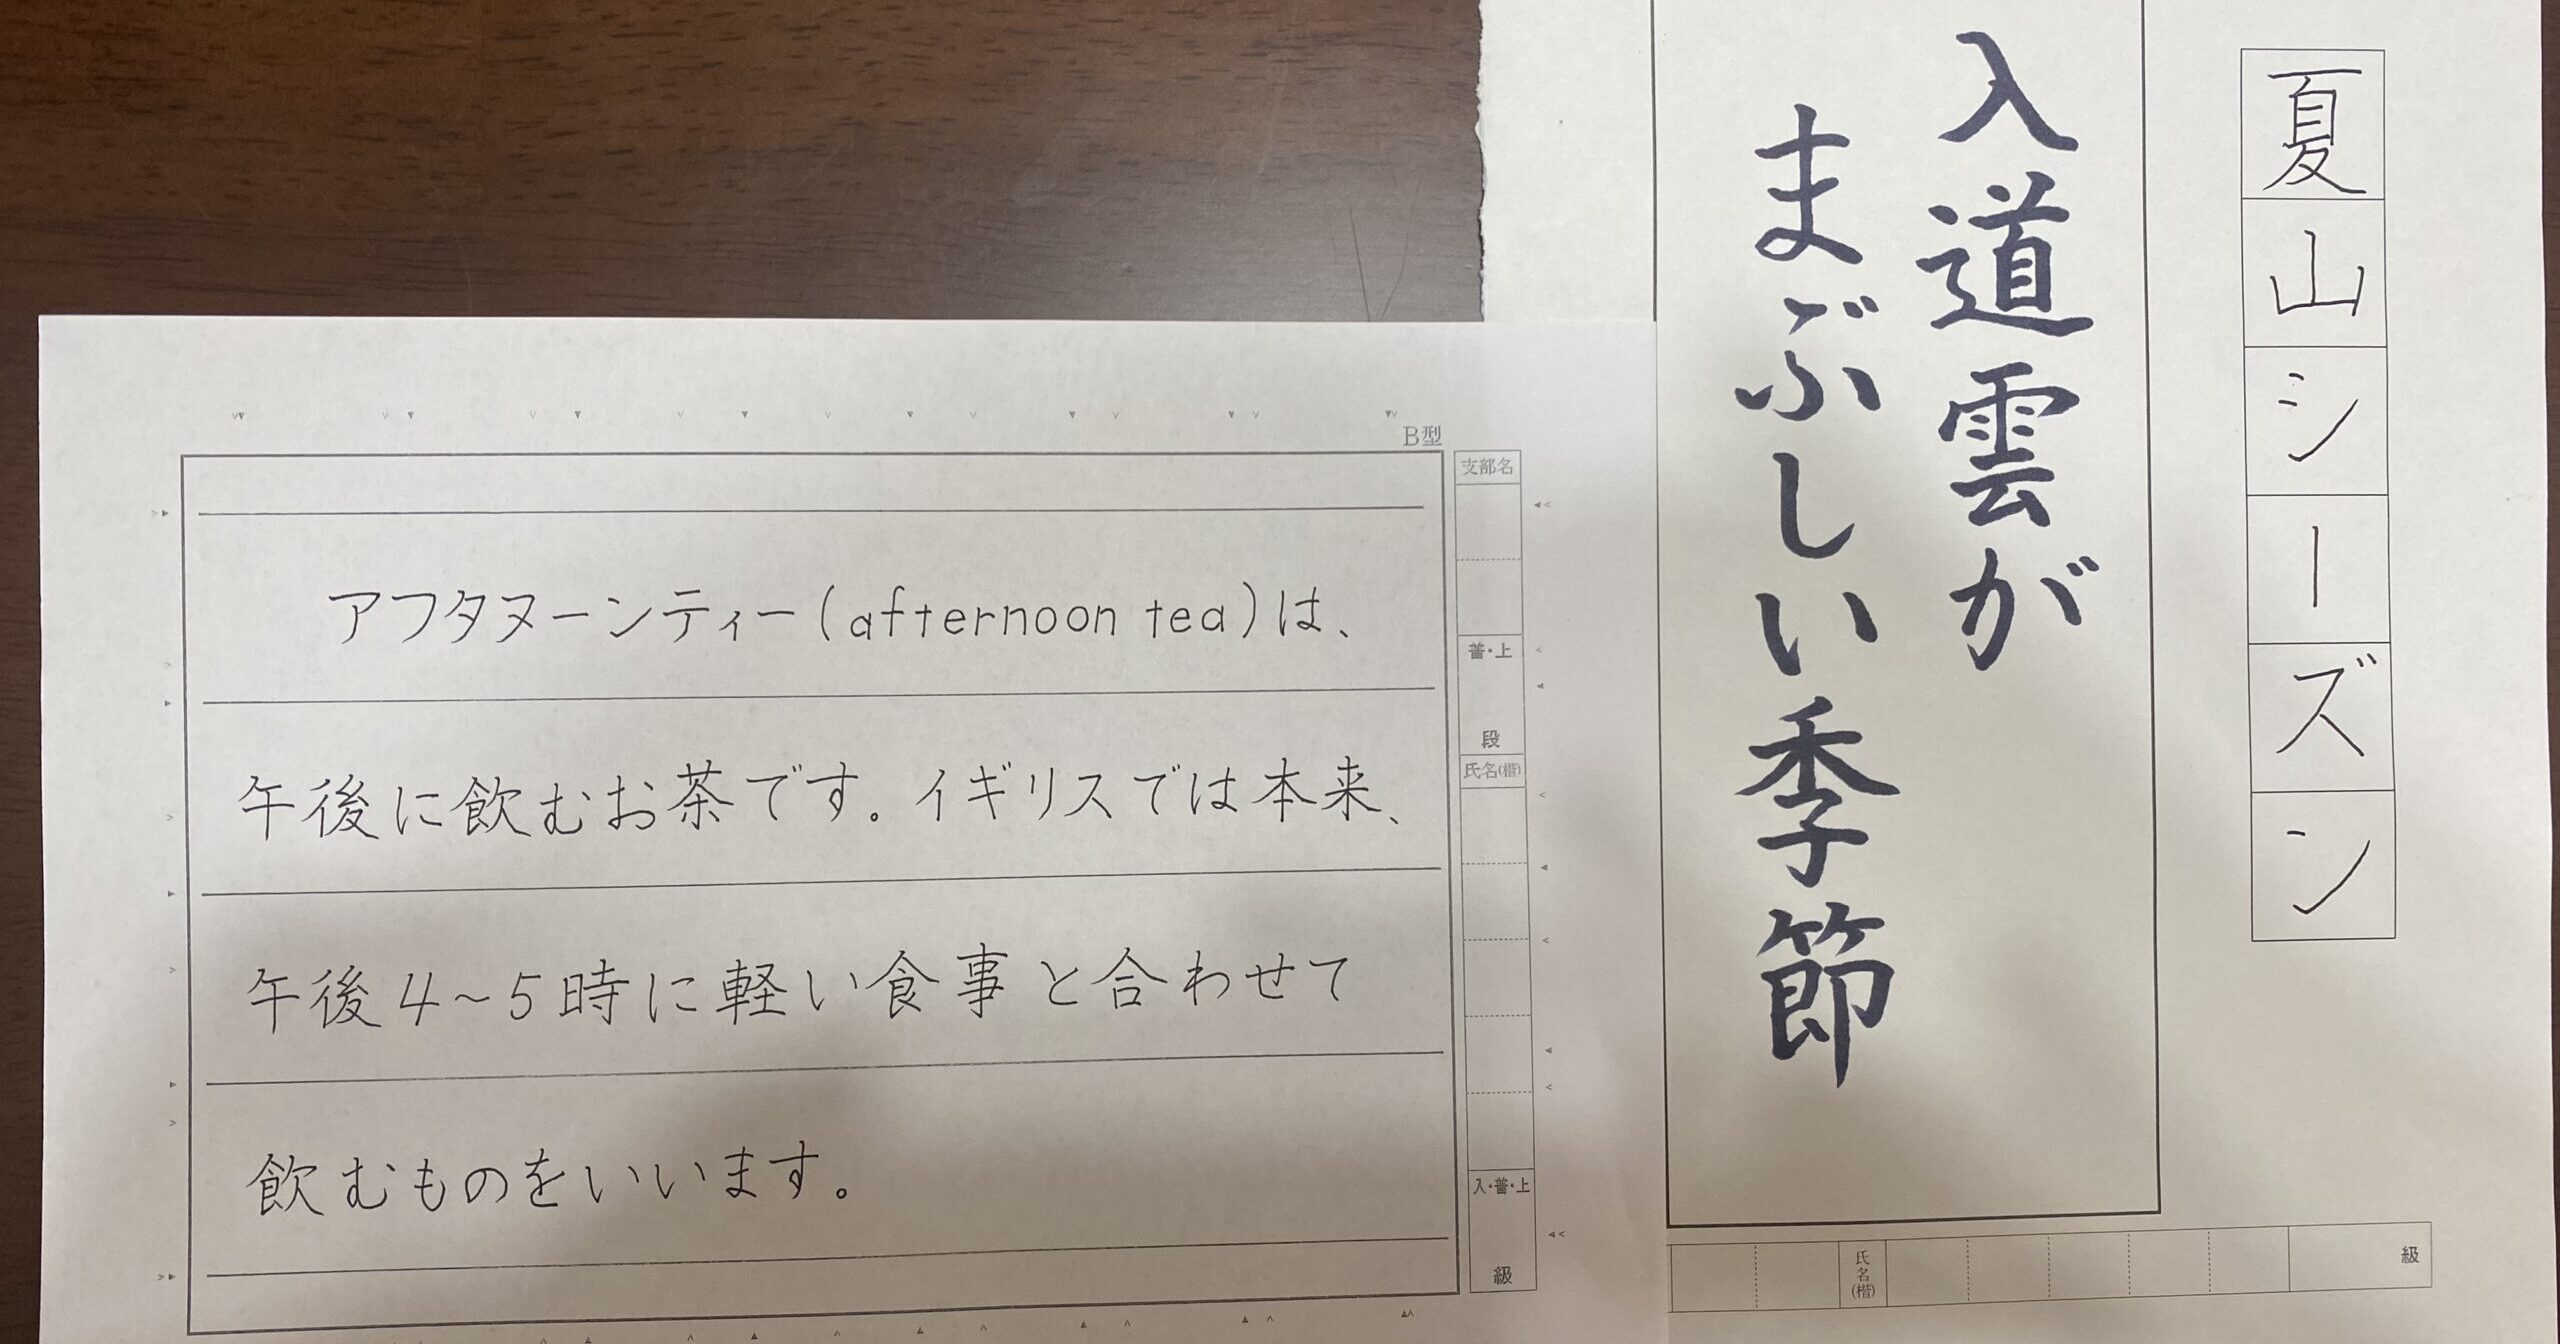 夏山シーズン
入道雲が
まぶしい季節
氏名(楷)
級
B型
支部名
普・上
段
氏名(楷)
入・普・上
級
アフタヌーンティー(afternoon tea)は、
午後に飲むお茶です。イギリスでは本来、
午後4~5時に軽い食事と合わせて
飲むものをいいます。